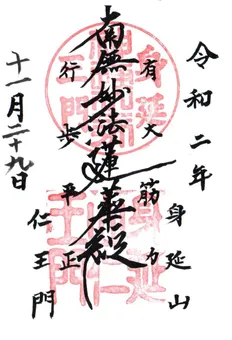 令和二年
身延山
有大筋力
南無妙法蓮華経
行歩平正
仁王門
十一月二十九日